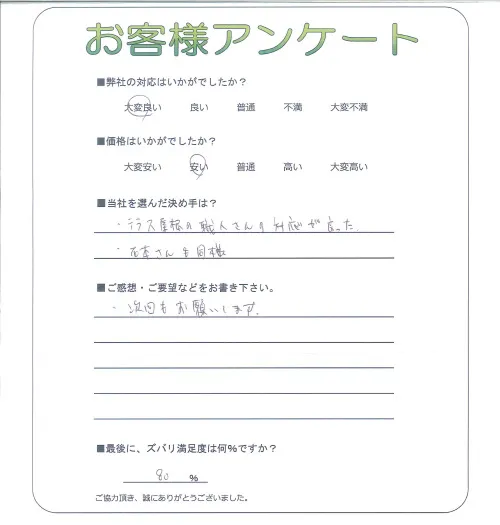 お客様アンケート
■弊社の対応はいかがでしたか?
大変良い 良い 普通 不満 大変不満
■価格はいかがでしたか?
大変安い 安い 普通 高い 大変高い
■当社を選んだ決め手は?
・テラス屋根の職人さんの対応が良った.
さんも同様
■ご感想・ご要望などをお書き下さい。
・次回もお願いします.
■最後に、ズバリ満足度は何%ですか?
80 %
ご協力頂き、誠にありがとうございました。